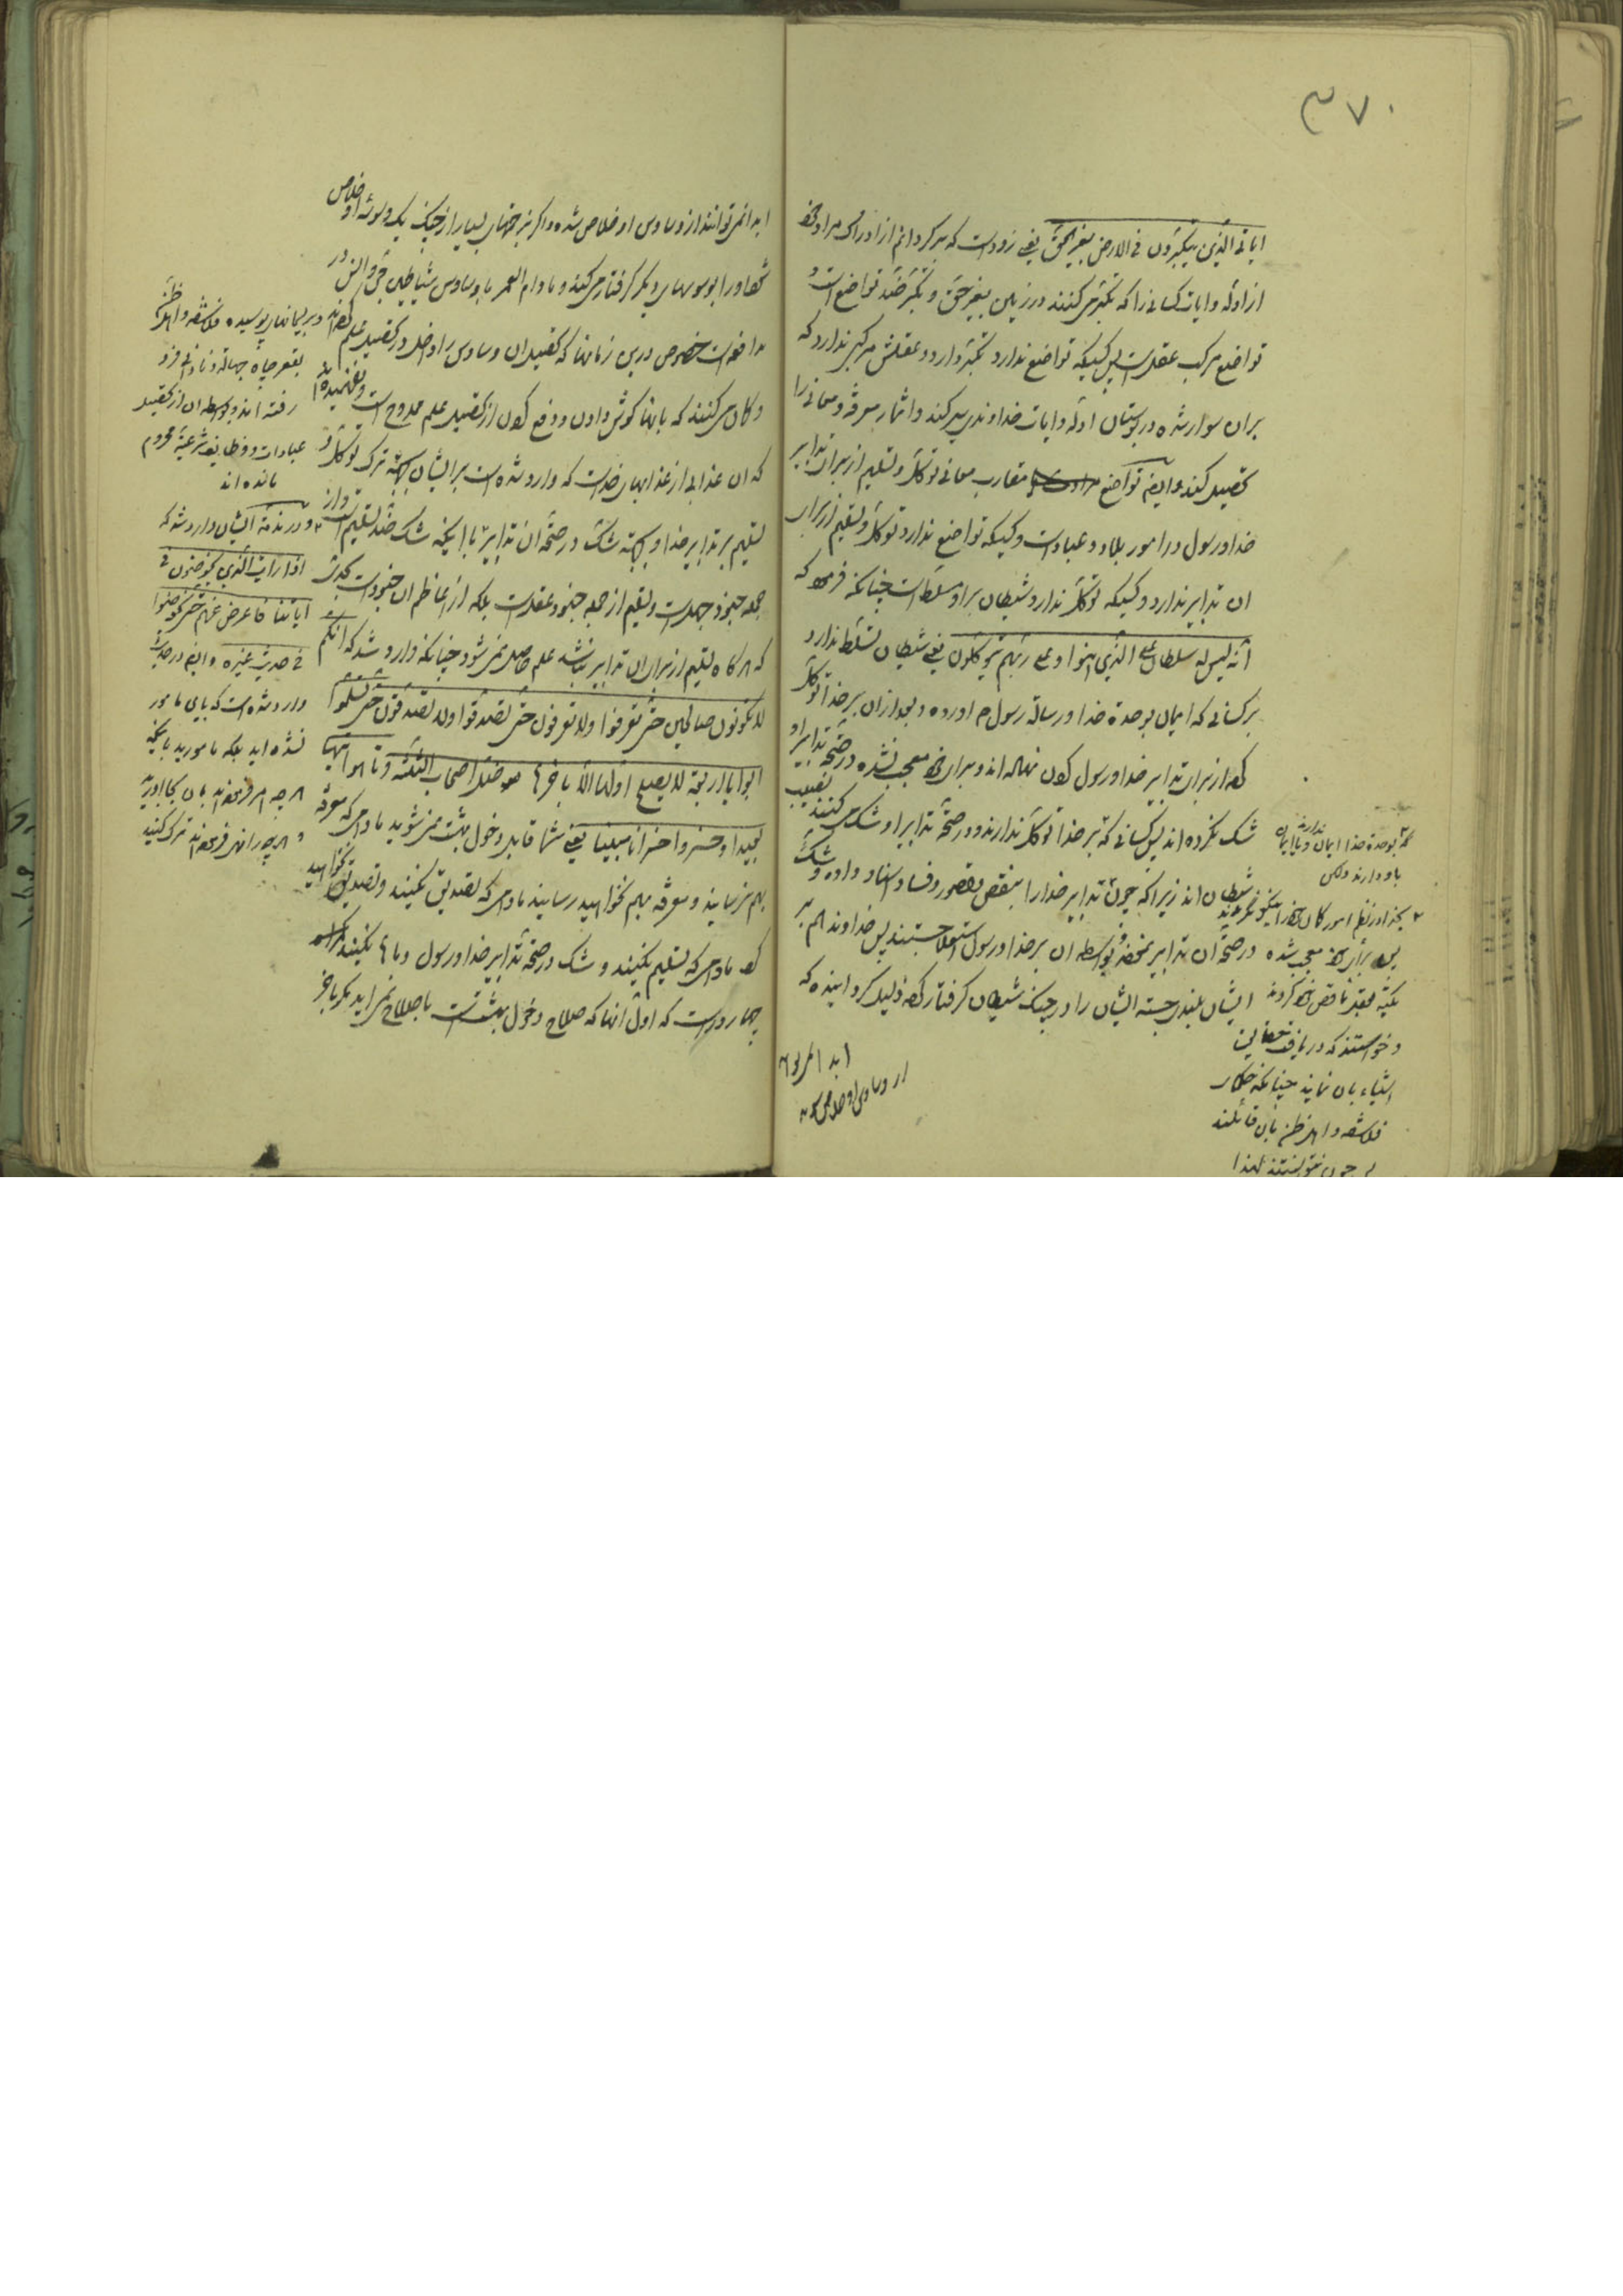 ٣٧٠
ایاتی الذین یتکبرون فی الارض بغیر الحق یعنی زودست که برگردانم از ادراک مراد خود
از ادله و ایات کسانی را که تکبر می کنند در زمین بغیر حق و تکبر ضد تواضع است و
تواضع مرکب عقلست پس کسیکه تواضع ندارد تکبر دارد و عقلش مرکبی ندارد که
بران سوار شده در بوستان ادله و ایات خداوندی سیر کند و اثمار معرفة و معانی را
تحصیل کند و ایضا تواضع مقارب معانی توکل و تسلیم از برای تدابیر
خدا و رسول در امور بلاد و عبادست و کسیکه تواضع ندارد توکل و تسلیم از برای
ان تدابیر ندارد و کسیکه توکل ندارد شیطان بر او مسلط است چنانکه فرموده که
انه لیس له سلطان علی الذین امنوا و علی ربهم یتوکلون یعنی شیطان تسلط ندارد
بر کسانی که ایمان بوحدة خدا و رسالة رسول م اورده و بعد از ان بر خدا توکل
کرده از برای تدابیر خدا و رسول کردن نهاده اند و برای خود معجب نشده در صحة تدابیر او
شک نکرده اند پس کسانی که بر خدا توکل ندارند و در صحة تدابیر او شک می کنند نصیب
شیطان اند زیرا که چون تدابیر خدا را بنقص و قصور و فساد اسناد داده و شک
در صحة ان تدابیر نموده و بواسطه ان بر خدا و رسول استعلا جستند پس خداوند هم بر
ایشان بلندی جسته ایشان را در چنک شیطان گرفتار کرده ذلیل گردانیده که
بوحدة خدا ایمان ندارند و یا ایمان
باو دارند ولکن
بخدا در نظم امور کان خود را نیکو نکرده اند
برأی خود معجب شده
تکیه بعقل ناقص خود کردند
و خواستند که دریافت حقایق
اشیاء بان نمایند چنانکه حکمای
فلاسفه و اهل ظن بان قائلند
چون نتوانستند لهذا
ابدا نمی توانند از وساوس او خلاص شده و اگر بجهتهای بسیار از چنک یک وسوسه او خلاص
شود او را بوسوسهای دیگر گرفتار می کند و مادام العمر با وساوس شیاطین جن و انس در
مدافعه است خصوص درین زمانها که تحصیل ان وساوس را داخل در تحصیل علم کرده اند
و گمان می کنند که بانها گوش دادن و دفع کردن از تحصیل علم ممدوح است و نفهمیده اند
که ان عذابی از عذابهای خداست که وارد شده است بر ایشان بجهة ترک توکل و
تسلیم بر تدابیر خدا و بجهة شک در صحة ان تدابیر با اینکه شک ضد تسلیم است و از
جمله جنود جهلست و تسلیم از جمله جنود عقلست بلکه از اعاظم ان جنودست بحدی
که هرگاه تسلیم از برای ان تدابیر نباشد علم حاصل نمی شود چنانکه وارد شد که انکم
لا تکونون صالحین حتی تعرفوا و لا تعرفون حتی تصدقوا و لا تصدقون حتی تسلموا
ابوابا اربعة لا یصلح اولها الا باخرها ضل اصحاب الثلثة و تاهوا تیها
بعیدا و خسروا خسرانا مبینا یعنی شما قابل دخول بهشت نمی شوید مادامی که معرفة
بهم نرسانید و معرفة بهم نخواهید رسانید مادامی که تصدیق نکنید و تصدیق نخواهید
کرد مادامی که تسلیم نکنید و شک در صحة تدابیر خدا و رسول و ما نکنید
چهار درست که اول انها که صلاح دخول بهشتست باصلاح نمی اید مگر باخر
و بریسمانهای پوسیده فلاسفه و اهل ظن
بقعر چاه جهالة و نادانی فرو
رفته اند و بواسطه ان از تحصیل
عبادات و وظایف شرعیة محروم
مانده اند
و در مذمة ایشان وارد شد که
اذا رایت الذین یخوضون فی
ایاتنا فاعرض عنهم حتی یخوضوا
فی حدیث غیره و ایضا در حدیث
وارد شده است که باین مامور
نشده اید بلکه مامورید باینکه
هرچه امر فرموده اند بان بجا اورید
و هرچه را نهی فرموده اند ترک کنید
ابدا نمی توانند
از وساوس او خلاص شده